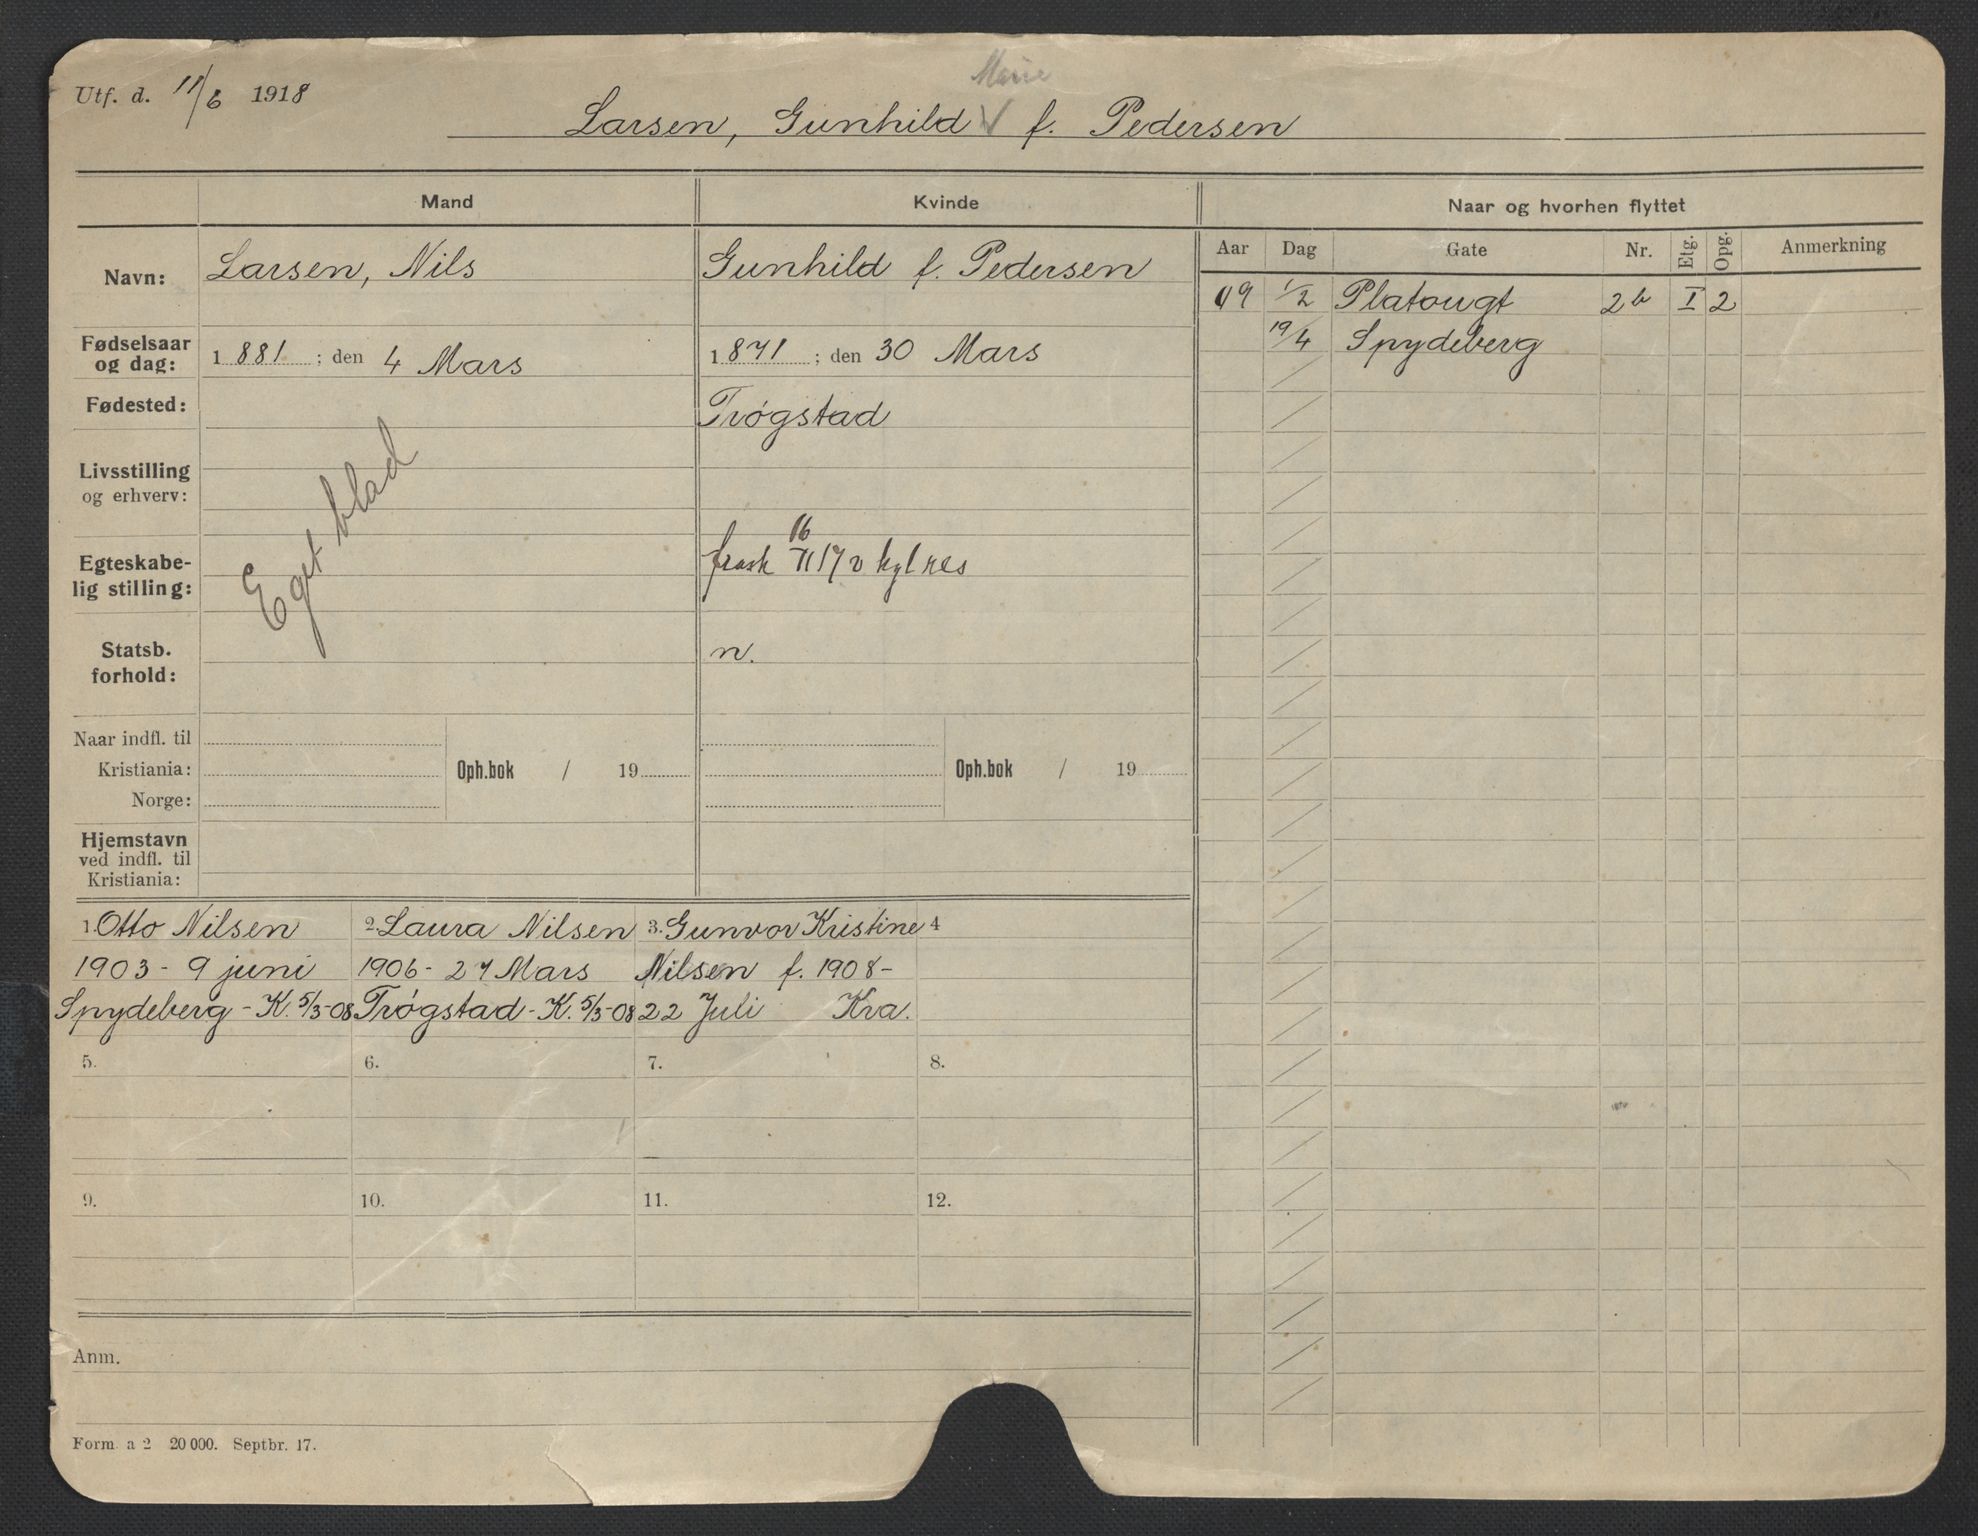 Utf. d. 11/6 1918
Marie
Larsen, Gunhild V f. Pedersen
Mand
Kvinde
Naar og hvorhen flyttet
Aar Dag Gate Nr. Etg. Opg. Anmerkning
Navn: Larsen, Nils Gunhild f. Pedersen
09 1/2 Platougt 2b I 2
19/4 Spydeberg
Fødselsaar
og dag: 1881 ; den 4 Mars 1871 ; den 30 Mars
Fødested: Trøgstad
Livsstilling
og erhverv:
Eget blad
Egteskabe-
lig stilling: 16
17 v kgl res
Statsb.
forhold: n.
Naar indfl. til
Kristiania: Oph.bok / 19 Oph.bok / 19
Norge:
Hjemstavn
ved indfl. til
Kristiania:
1. Otto Nilsen
1903 - 9 juni
Spydeberg - K. 5/3-08
2. Laura Nilsen
1906 - 27 Mars
Trøgstad - K. 5/3-08
3. Gunvor Kristine
Nilsen f. 1908 -
22 Juli Kva.
4
5. 6. 7. 8.
9. 10. 11. 12.
Anm.
Form. a 2 20 000. Septbr. 17.